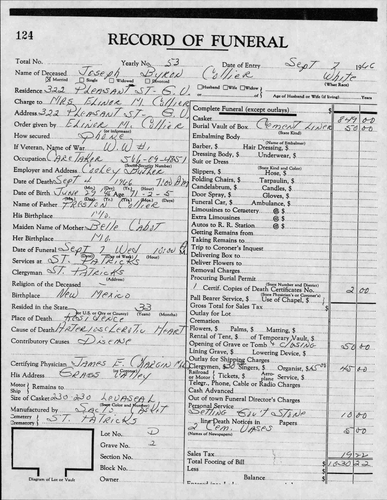 124
RECORD OF FUNERAL
Total No. Yearly No. 53 Date of Entry Sept 7 1966
Name of Deceased Joseph Byron Collier White
Married Single Widowed Divorced (What Race)
Residence 322 Pleasant St - G.V. Husband Wife Widow of Age of Husband or Wife (if living) Years
Charge to Mrs. Elinor M. Collier
Address 322 Pleasant St - G.V.
Order given by Elinor M. Collier
How secured Above
If Veteran, Name of War W.W. #1.
Occupation Caretaker
(Social Security Number)
Employer and Address Cooley Butler
Date of Death Sept 4 1966
Date of Birth June
Name of Father Preston Collier
His Birthplace Mo.
Maiden Name of Mother Belle Cabot
Her Birthplace Mo.
Date of Funeral Sept 7 Wed 10:00
Services at St. Patricks
Clergyman St. Patricks
(Address)
Religion of the Deceased
Birthplace New Mexico
Resided in the State 33
Place of Death Residence
Cause of Death Arteriosclerotic Heart
Contributory Causes Disease
Certifying Physician James E.
His Address Grass Valley
Motor Ship Remains to
Size of Casket
Manufactured by
Cemetery St. Patricks
Lot No. D
Grave No. 2
Section No.
Block No.
Diagram of Lot or Vault Owner
Complete Funeral (except outlays) $
Casket 849 00
Burial Vault of Box Cement Liner 50 00
(State Kind)
Embalming Body
(Name of Embalmer)
Barber, $ Hair Dressing, $
Dressing Body, $ Underwear, $
Suit or Dress
Slippers, $ Hose, $
Folding Chairs, $ Tarpaulin, $
Candelabrum, $ Candles, $
Door Spray, $ Gloves, $
Funeral Car, $ Ambulance, $
Limousines to Cemetery @ $
Extra Limousines @ $
Autos to R. R. Station @ $
Getting Remains from
Taking Remains to
Trip to Coroner's Inquest
Delivering Box to
Deliver Flowers to
Removal Charges
Procuring Burial Permit
1 Certif. Copies of Death Certificates No. 2 00
Pall Bearer Service, $ Use of Chapel, $
Gross Total for Sales Tax $
Outlay for Lot
Cremation
Flowers, $ Palms, $ Matting, $
Rental of Tent, $ of Temporary Vault, $
Opening of Grave or Tomb + Closing 50 00
Lining Grave, $ Lowering Device, $
Outlay for Shipping Charges
Clergymen, $ Singers, $ Organist, $ 45 00
Railroad or Motor Tickets, $ Aeroplane Service, $
Telegr., Phone, Cable or Radio Charges
Cash Advanced
Out of town Funeral Director's Charges
Personal Service
Setting Gov't Stone 10 00
line Death Notices in Papers
2 Cem Vases 5 00
(Names of Newspapers)
Sales Tax 19 22
Total Footing of Bill $ 1030 22
Less
Balance $